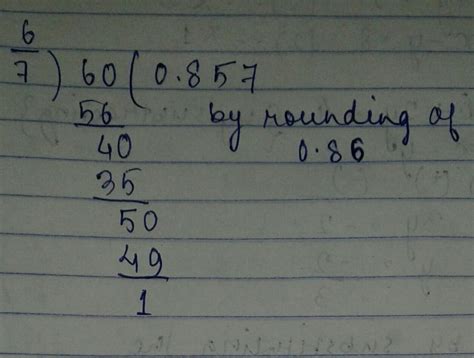 6
7 ) 60 ( 0.857
56 by rounding of
40 0.86
35
50
49
1